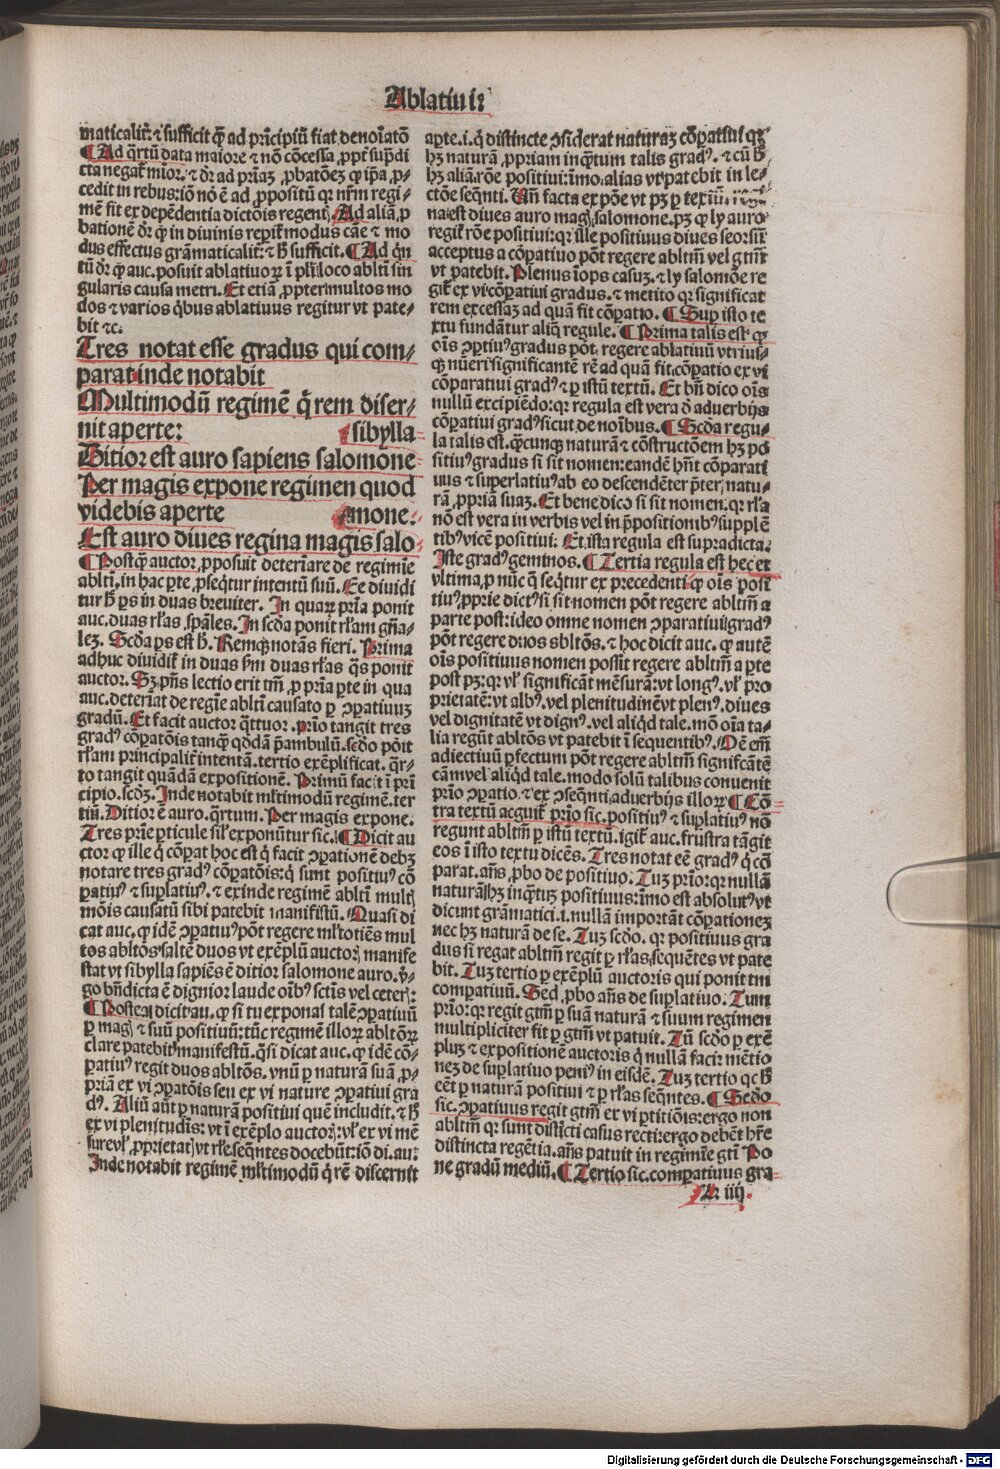 Ablatiui
maticalit̄. ⁊ sufficit ꝙ̄ ad prīcipiū fiat denoīatō
¶ Ad q̄rtū data maiore ⁊ nō cōcessa, ꝓpt̄ sup̄di
cta negat̄ mīor. ⁊ d̄r ad prīaꝫ, ꝓbatōeꝫ ꝙ ip̄a, ꝓ-
cedit in rebus: iō nō ē ad, ꝓpositū qꝛ nr̄m regi-
mē fit ex depēdentia dictōis regentꝭ. Ad aliā, ꝓ
bationē d̄r ꝙ in diuinis repit̄ modus cāe ⁊ mo
dus effectus grāmaticalit̄: ⁊ h̄ sufficit. ¶ Ad q̄n
tū d̄r ꝙ auc. posuit ablatiuoꝝ ī pl̄i loco abltī sin
gularis causa metri. Et etiā, ꝓpter multos mo
dos ⁊ varios q̄bus ablatiuus regitur vt pate-
bit ⁊c.
Tres notat esse gradus qui com-
parat inde notabit
Multimodū regimē q̄ rem diser-
nit aperte: sibylla
Ditior est auro sapiens salomone
Per magis expone regimen quod
videbis aperte mone:
Est auro diues regina magis salo
¶ Postꝙ̄ auctor, ꝓposuit determīare de regimīe
abltī, in hac ꝑte, ꝓseq̄tur intentū suū. Ee diuidi
tur h̄ ps in duas breuiter. In quaꝝ prīa ponit
auc. duas rl̄as, spāles. In scd̄a ponit rl̄am gn̄a-
leꝫ. Scd̄a ps est h̄. Remqꝫ notās fieri. Prima
adhuc diuidit̄ in duas ẜm duas rl̄as q̄s ponit
auctor. Sꝫ pn̄s lectio erit tm̄, ꝓ prīa ꝑte in qua
auc. determīat de regīe abltī causato ꝑ ꝯpatiuuꝫ
gradū. Et facit auctor q̄ttuor. prīo tangit tres
gradꝰ cōpatōis tanqꝫ qd̄dā p̄ambulū. scd̄o pōit
rl̄am principalit̄ intentā. tertio exēplificat. q̄r-
to tangit quādā expositionē. Primū facit ī prī
cipio. scd̄ꝫ. Inde notabit ml̄timodū regimē. ter
tiū. Ditior ē auro. q̄rtum. Per magis expone.
Tres prīe ꝑticule sil̄ exponūtur sic. ¶ Dicit au
ctor ꝙ ille q̄ cōpat hoc est q̄ facit ꝯpationē debꝫ
notare tres gradꝰ cōpatōis: q̄ sunt positiuꝰ cō
patiuꝰ ⁊ suplatiuꝰ. ⁊ exinde regimē abltī multꝭ
mōis causatū sibi patebit manifistū. Quasi di
cat auc. ꝙ idē ꝯpatiuꝰ pōt regere ml̄totiēs mul
tos abltōs: saltē duos vt exēplū auctorꝭ manife
stat vt sibylla sapiēs ē ditior salomone auro. v̄-
go bn̄dicta ē dignior laude oībꝰ sctīs vel ceterꝭ:
¶ Postea dicit au. ꝙ si tu exponas talē ꝯpatiuū
ꝑ magꝭ ⁊ suū positiuū: tūc regimē illoꝝ abltōꝝ
clare patebit manifestū. q̄si dicat auc. ꝙ idē cō-
patiuꝰ regit duos abltōs. vnū ꝑ naturā suā, ꝓ-
priā ex vi ꝯpatōis seu ex vi nature ꝯpatiui gra
dꝰ. Aliū aūt ꝑ naturā positiui quē includit. ⁊ h̄
ex vi plenitudīs: vt ī exēplo auctorꝭ: vl̄ ex vi mē
sure vl̄, ꝓprietatꝭ vt rl̄e seq̄ntes docebūt: iō di. au:
Inde notabit regimē ml̄timodū q̄ rē discernit
apte. i. q̄ distincte ꝯsiderat naturaꝫ cōpatiui qꝛ
hꝫ naturā, ꝓpriam inq̄tum talis gradꝰ. ⁊ cū h̄
hꝫ aliā rōe positiui: īmo. alias vt patebit in le-
ctōe seq̄nti. Un̄ facta expōe vt pꝫ ꝑ textū
na est diues auro magꝭ salomone. pꝫ ꝙ ly auro
regit̄ rōe positiui: qꝛ ille positiuus diues seorsū
acceptus a cōpatiuo pōt regere abltm̄ vel gtm̄
vt patebit. Plenus īops casuꝫ. ⁊ ly salomōe re
git̄ ex vi cōpatiui gradus. ⁊ merito qꝛ significat
rem excessaꝫ ad quā fit cōpatio. ¶ Sup isto te
xtu fundātur aliq̄ regule. ¶ Prima talis est ꝙ
oīs ꝯptiuꝰ gradus pōt regere ablatiuū vtrius-
qꝫ nūeri significantē rē ad quā fit cōpatio ex vi
cōparatiui gradꝰ ⁊ ꝑ istū textū. Et bn̄ dico oīs
nullū excipiēdo: qꝛ regula est vera d̄ aduerbijs
cōpatiui gradꝰ sicut de noībus. ¶ Scd̄a regu-
la talis est. q̄cunqꝫ naturā ⁊ cōstructōem hꝫ po
sitiuꝰ gradus si sit nomen: eandē hn̄t cōparati
uus ⁊ superlatiuꝰ ab eo descendēter p̄ter natu-
rā, ꝓpriā suaꝫ. Et bene dico si sit nomen. qꝛ rl̄a
nō est vera in verbis vel in p̄positionibꝰ supplē
tibꝰ vicē positiui: Et ista regula est supradicta.
Iste gradꝰ geminos. ¶ Tertia regula est hec et
vltima, ꝓ nūc q̄ seq̄tur ex precedenti ꝙ oīs posi
tiuꝰ, ꝓprie dictꝰ si sit nomen pōt regere abltm̄ a
parte post: ideo omne nomen ꝯparatiui gradꝰ
pōt regere duos sbltōs. ⁊ hoc dicit auc. ꝙ autē
oīs positiuus nomen possit regere abltm̄ a ꝑte
post pꝫ: qꝛ vl̄ significāt mēsurā: vt longꝰ. vl̄ pro
prietatē: vt albꝰ. vel plenitudinē vt plenꝰ. diues
vel dignitatē vt dignꝰ. vel aliq̄d tale. mō oīa ta-
lia regūt abltōs vt patebit ī sequentibꝰ. Dē em̄
adiectiuū ꝑfectum pōt regere abltm̄ significātē
cām vel aliq̄d tale. modo solū talibus conuenit
prīo ꝯpatio. ⁊ ex ꝯseq̄nti aduerbijs illoꝝ ¶ Cō
tra textū acguit̄ prīo sic. positiuꝰ ⁊ suplatiuꝰ nō
regunt abltm̄ ꝑ istū textū. igit̄ auc. frustra tāgit
eos ī isto textu dicēs. Tres notat eē gradꝰ q̄ cō
parat. an̄s, ꝓbo de positiuo. Tuꝫ prīo: qꝛ nullā
naturā hꝫ inq̄tuꝫ positiuus: īmo est absolutꝰ vt
dicunt grāmatici. i. nullā importāt cōpationeꝫ
nec hꝫ naturā de se. Tuꝫ scd̄o. qꝛ positiuus gra
dus si regat abltm̄ regit ꝑ rl̄as, seq̄uētes vt pate
bit. Tuꝫ tertio ꝑ exēplū auctoris qui ponit tm̄
compatiuū. Sed, ꝓbo an̄s de suplatiuo. Tum
prīo: qꝛ regit gtm̄ ꝑ suā naturā ⁊ suum regimen
multipliciter fit ꝑ gtm̄ vt patuit. Tū scd̄o ꝑ exē
pluꝫ ⁊ expositionē auctoris q̄ nullā facit mētio
neꝫ de suplatiuo penitꝰ in eisdē. Tuꝫ tertio qꝛ h̄
eēt ꝑ naturā positiui ⁊ ꝑ rl̄as seq̄ntes. ¶ Scd̄o
sic. ꝯpatiuus regit gtm̄ ex vi ꝑtitiōis: ergo non
abltm̄ qꝛ sunt distīcti casus recti: ergo debēt hr̄e
distincta regētia. an̄s patuit in regimīe gtī Po
ne gradū mediū. ¶ Tertio sic. compatiuus gra-
iiij
Digitalisierung gefördert durch die Deutsche Forschungsgemeinschaft - DFG